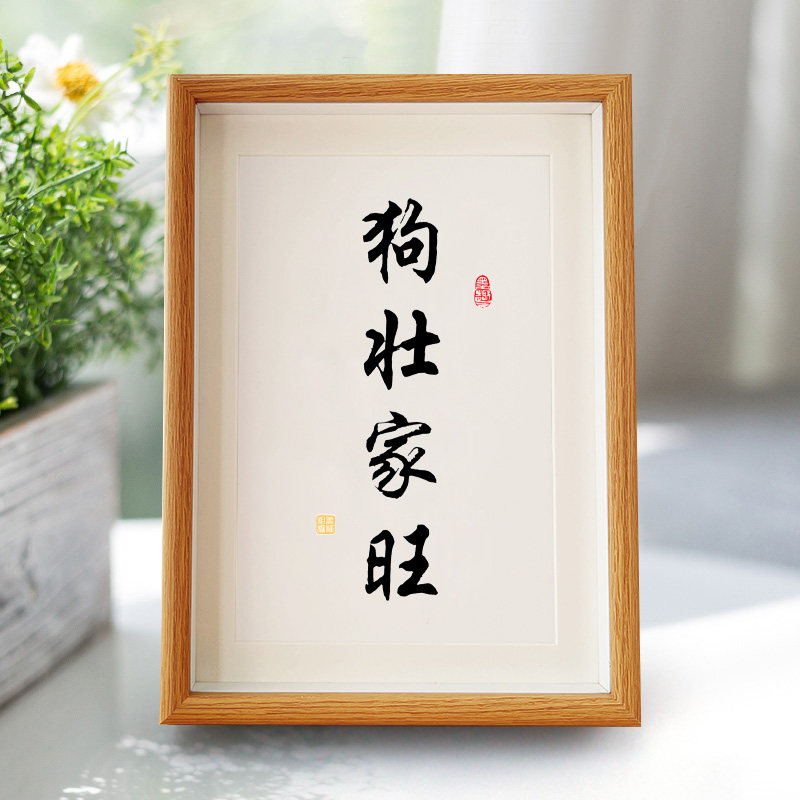 狗壮家旺